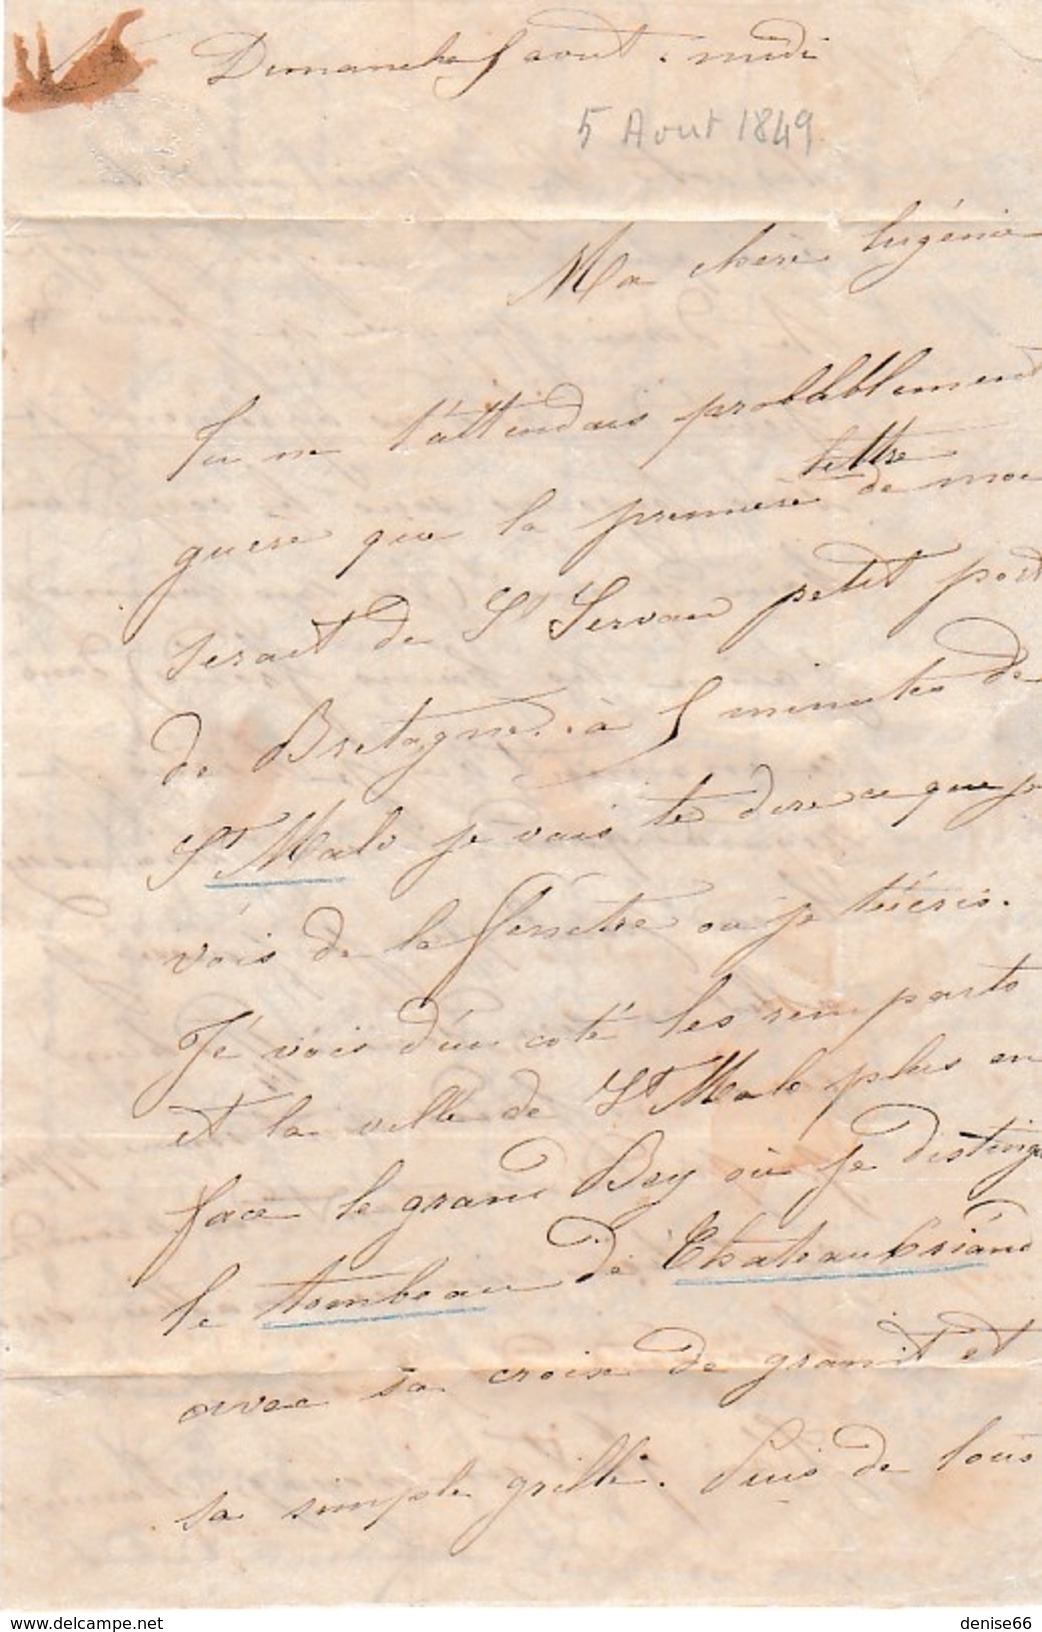 Dimanche 5 aout. midi
5 Aout 1849.
Ma chère Eugénie
Tu ne t'attendais probablement
lettre
guère que la première de moi
serait de St Servan petit port
de Bretagne. à 5 minutes de
St Malo je vais te dire ce que je
vois de la fenêtre où je t'écris.
Je vois d'un coté les remparts
et la ville de St Malo plus en
face le grand Bey où je distingue
le tombeau de Chateaubriand
avec sa croix de granit et
sa simple grille. Puis de tous
www.delcampe.net
denise66